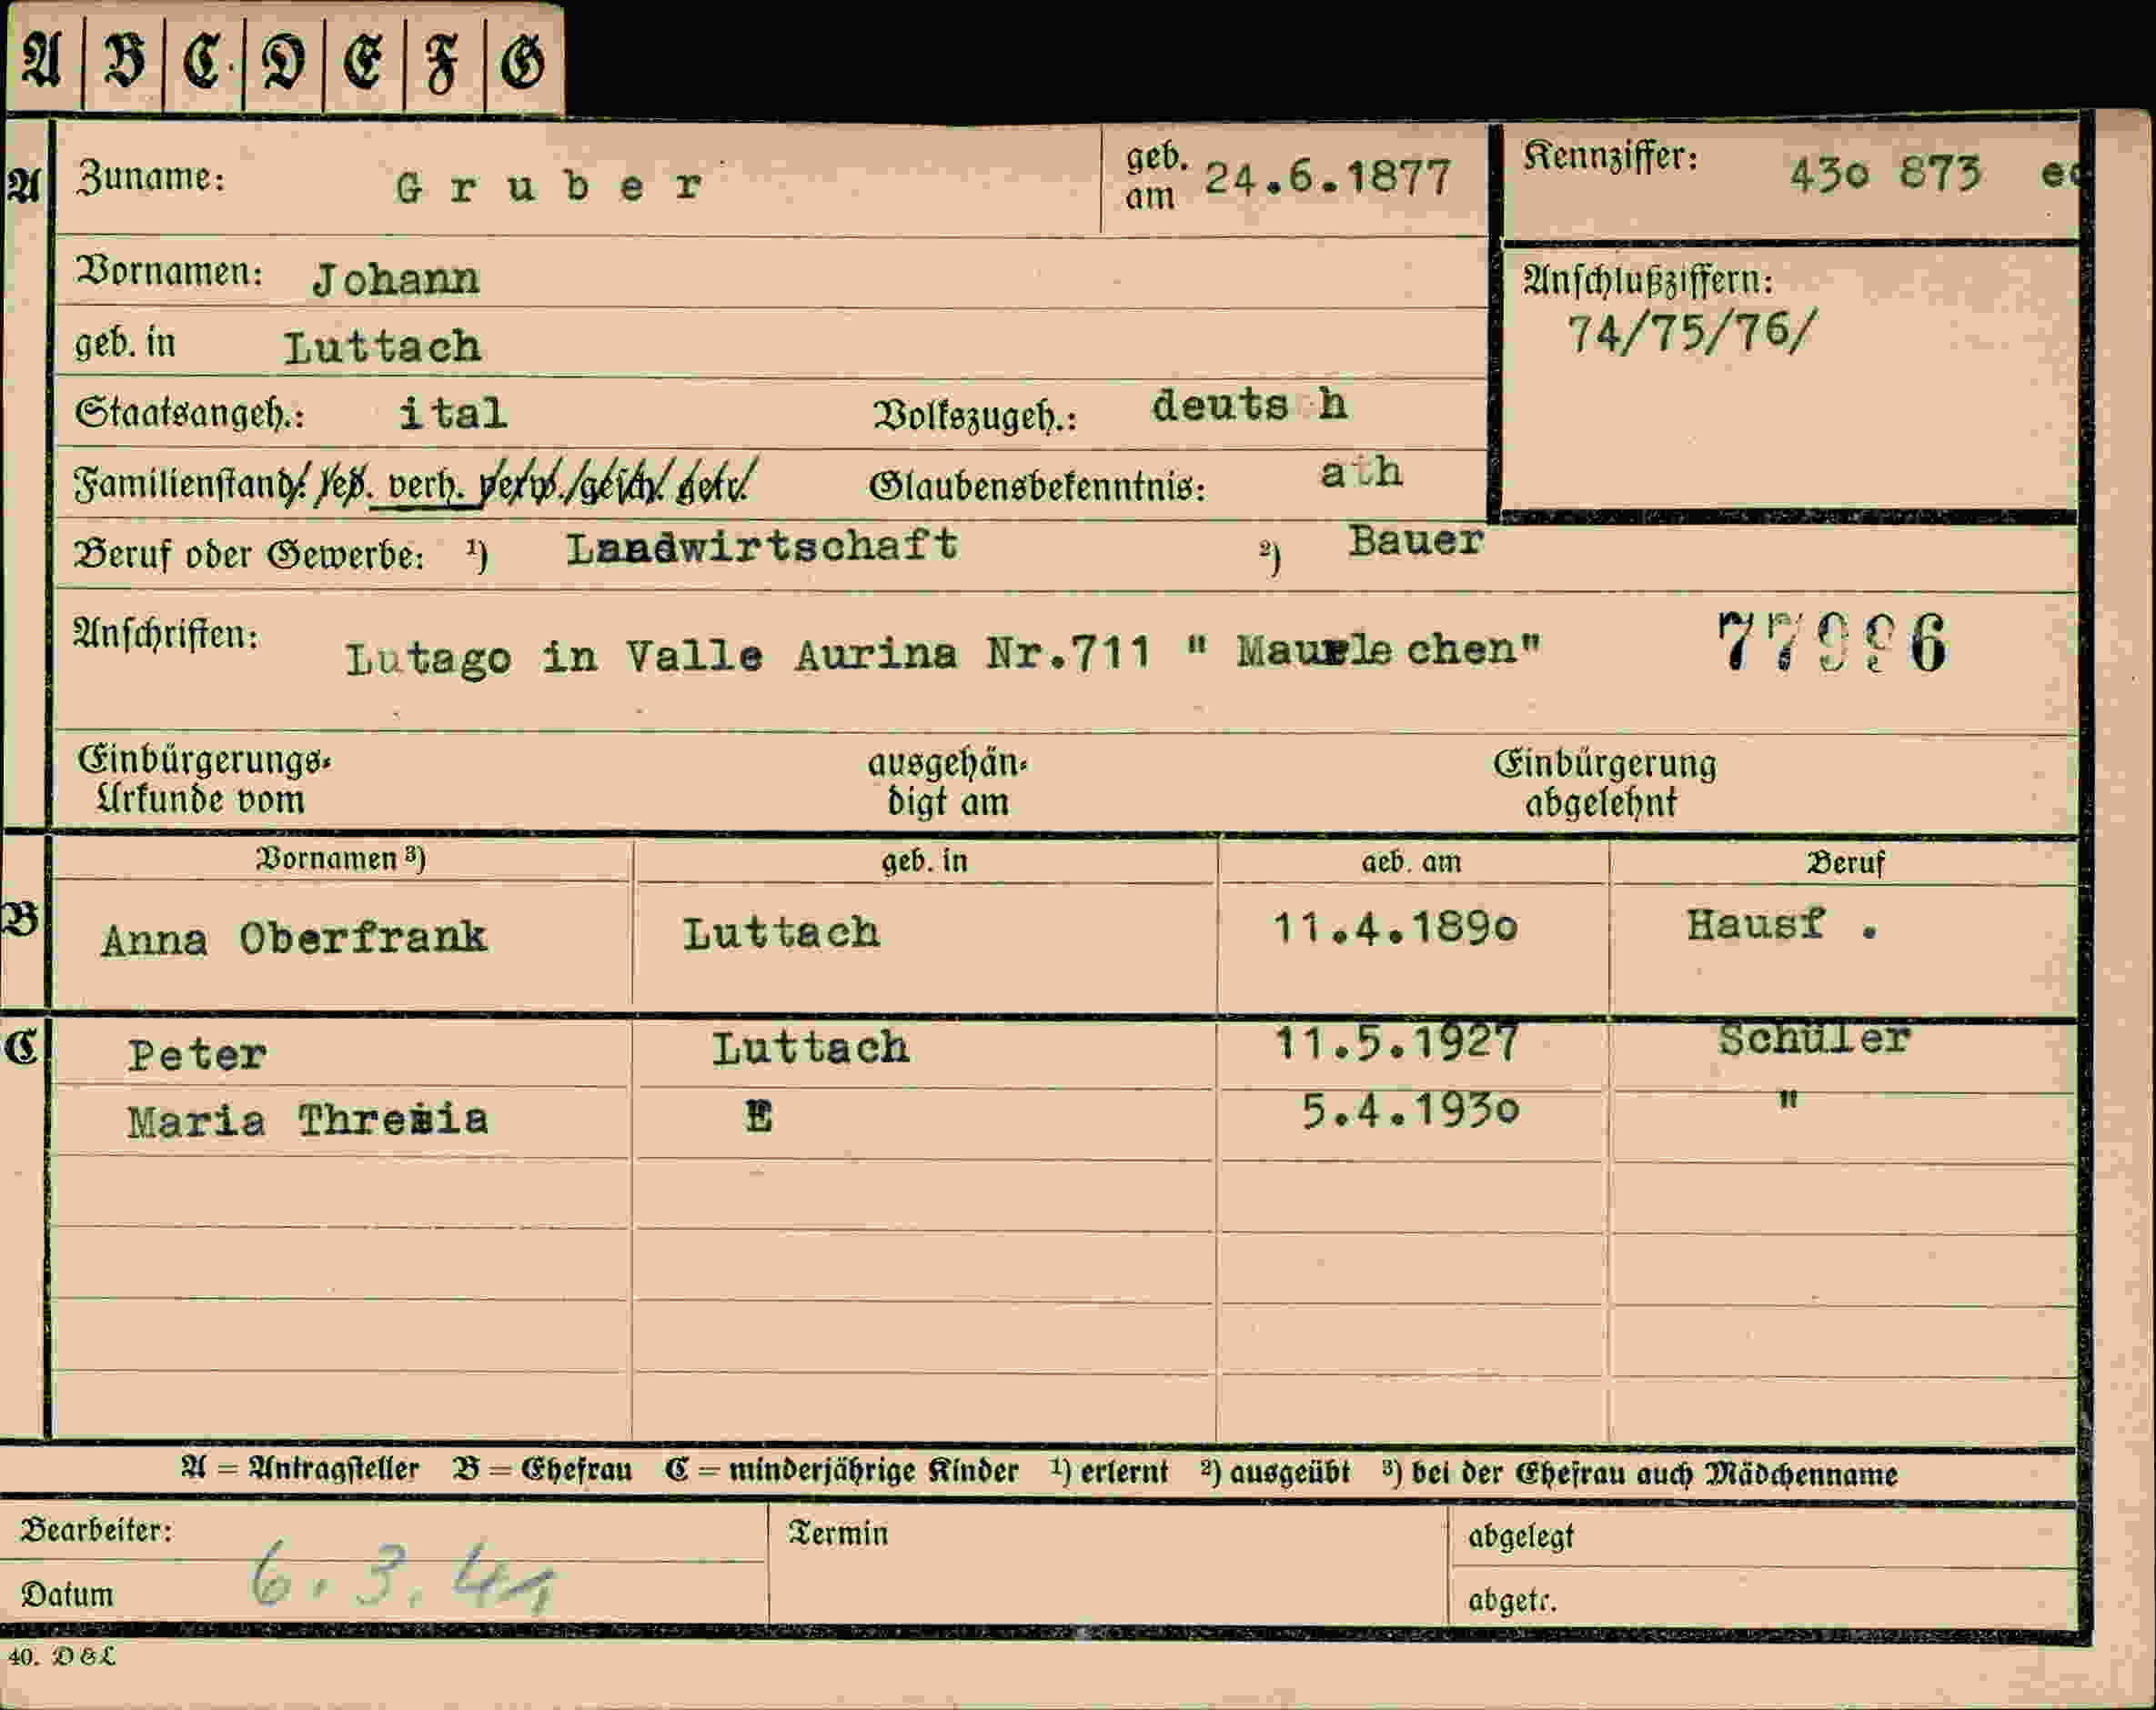 A B C D E F G
A Zuname: Gruber geb. am 24.6.1877 Kennziffer: 430 873
Vornamen: Johann Anschlußziffern:
geb. in Luttach 74/75/76/
Staatsangeh.: ital Volkszugeh.: deuts h
Familienstand: led. verh. verw. gesch. getr. Glaubensbekenntnis: ath
Beruf oder Gewerbe: ¹) Landwirtschaft ²) Bauer
Anschriften: Lutago in Valle Aurina Nr.711 " Maurle chen" 77996
Einbürgerungs- ausgehän- Einbürgerung
Urkunde vom digt am abgelehnt
Vornamen ³) geb. in geb. am Beruf
B Anna Oberfrank Luttach 11.4.1890 Hausf .
C Peter Luttach 11.5.1927 Schüler
Maria Thresia E 5.4.1930 "
A = Antragsteller B = Ehefrau C = minderjährige Kinder ¹) erlernt ²) ausgeübt ³) bei der Ehefrau auch Mädchenname
Bearbeiter: Termin abgelegt
Datum 6.3.41 abgetr.
40. D & L